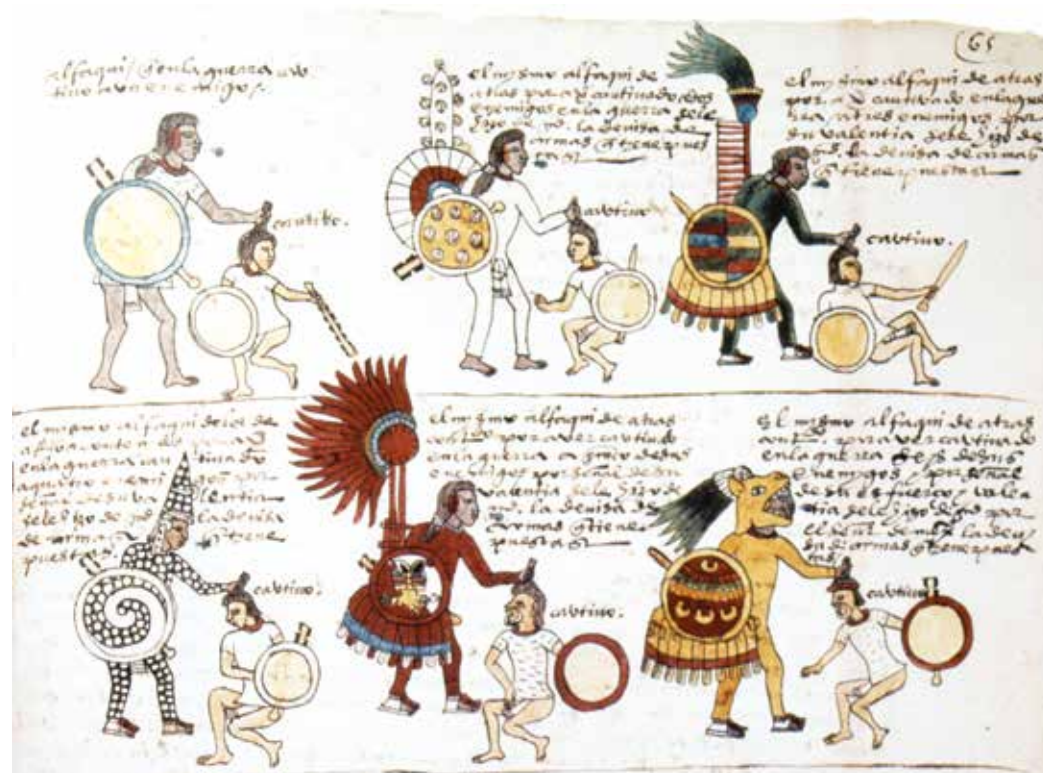 (65
alfaqui / q̄ en la guerra cau
tivo a un enemigo /.
cautibo.
el mismo alfaqui de
atras por q̄ cautivado dos
enemigos en la guerra dele
hizo md. la devisa de
armas q̄ tiene pues
tas
cautivo
el mismo alfaqui de atras
por a cautivado en la gue
rra a tres enemigos por
su valentia dele hizo de
md. la devisa de armas
q̄ tiene puestas
cautivo.
el mismo alfaqui
en la guerra cautivado
a quatro enemigos por
señal de su valentia
dele hizo de md. la devisa
de armas q̄ tiene
puestas.
cautivo.
el mismo alfaqui de atras
por aver cautivado
en la guerra a cinco de sus
enemigos por señal de su
valentia dele hizo de
md. la devisa de
armas q̄ tiene
puestas
cautivo.
El mismo alfaqui de atras
por aver cautivado
en la guerra seis de sus
enemigos / por señal
de su esfuerço / valen
tia dele hizo de md por
el señor de mexico la devi
sa de armas q̄ tiene pues
tas
cautivo